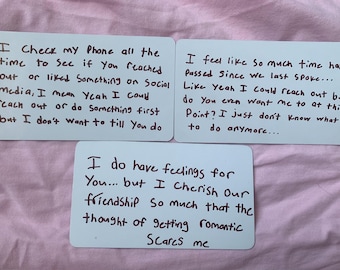 I Check my Phone all the
time to see if you reached
out or liked something on social
media, I mean Yeah I could
reach out or do something first
but I don't want to till you do
I feel like so much time has
passed since we last spoke...
Like Yeah I could reach out but
do you even want me to at this
Point? I just don't know what
to do anymore...
I do have feelings for
You... but I Cherish our
friendship so much that the
thought of getting romantic
Scares me